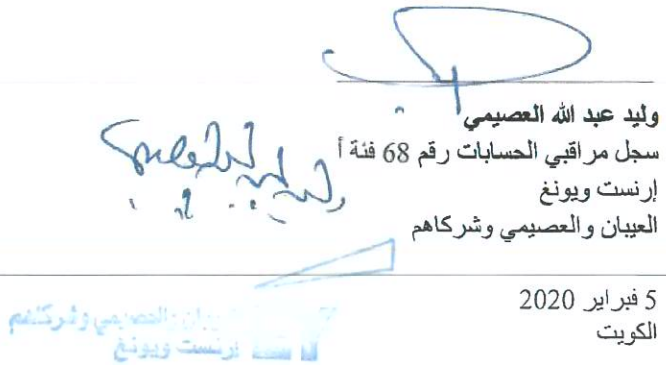 وليد عبد الله العصيمي
سجل مراقبي الحسابات رقم 68 فئة أ
إرنست ويونغ
العيبان والعصيمي وشركاهم
5 فبراير 2020
الكويت
العيبان والعصيمي وشركاهم
إرنست ويونغ